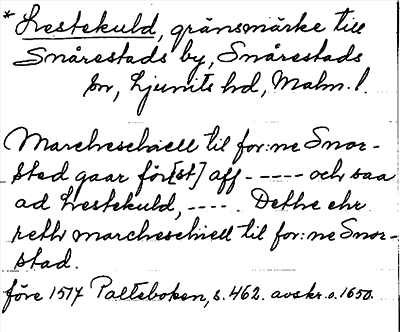 * Hestekuld, gränsmärke till
Snårestads by, Snårestads
sn, Ljunits hd, Malm. l.
Marcheschiell til for:ne Snor-
sted gaar för[st] aff ----- och saa
ad Hestekuld, ----. Dethe ehr
reth marcheschiell til for:ne Snor-
stad.
före 1517 Palteboken, s. 462. avskr. o. 1650.